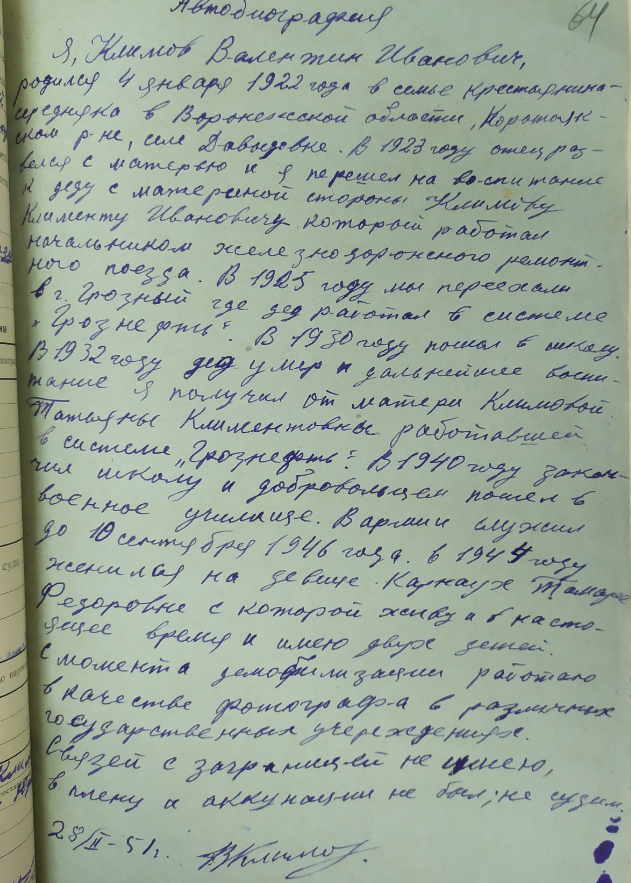 Автобиография
64
Я, Климов Валентин Иванович,
родился 4 января 1922 года в семье крестьянина-
середняка в Воронежской области, Коротоякс-
ком р-не, селе Давыдовке. В 1923 году отец раз-
велся с матерью и я перешел на воспитание
к деду с материной стороны Климову
Клименту Ивановичу который работал
начальником железнодорожного ремонт-
ного поезда. В 1925 году мы переехали
в г. Грозный где дед работал в системе
"Грознефть". В 1930 году пошел в школу.
В 1932 году дед умер и дальнейшее воспи-
тание я получил от матери Климовой
Татьяны Климентовны работавшей
в системе "Грознефть". В 1940 году закон-
чил школу и добровольцем пошел в
военное училище. В армии служил
до 10 сентября 1946 года. в 1944 году
женился на девице Карнаух Тамаре
Федоровне с которой живу и в насто-
ящее время и имею двух детей.
С момента демобилизации работаю
в качестве фотографа в различных
государственных учереждениях.
Связей с заграницей не имею,
в плену и аккупации не был; не судим.
28/II-51г. ВКлимов